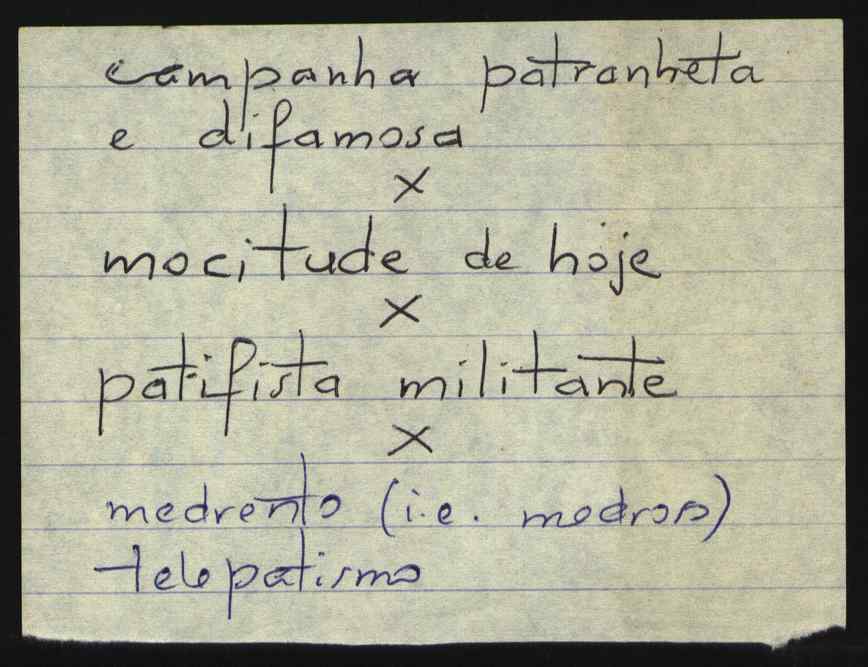 campanha patranheta
e difamosa
×
mocitude de hoje
×
patifista militante
×
medrento (i.e. medroso)
telepatismo